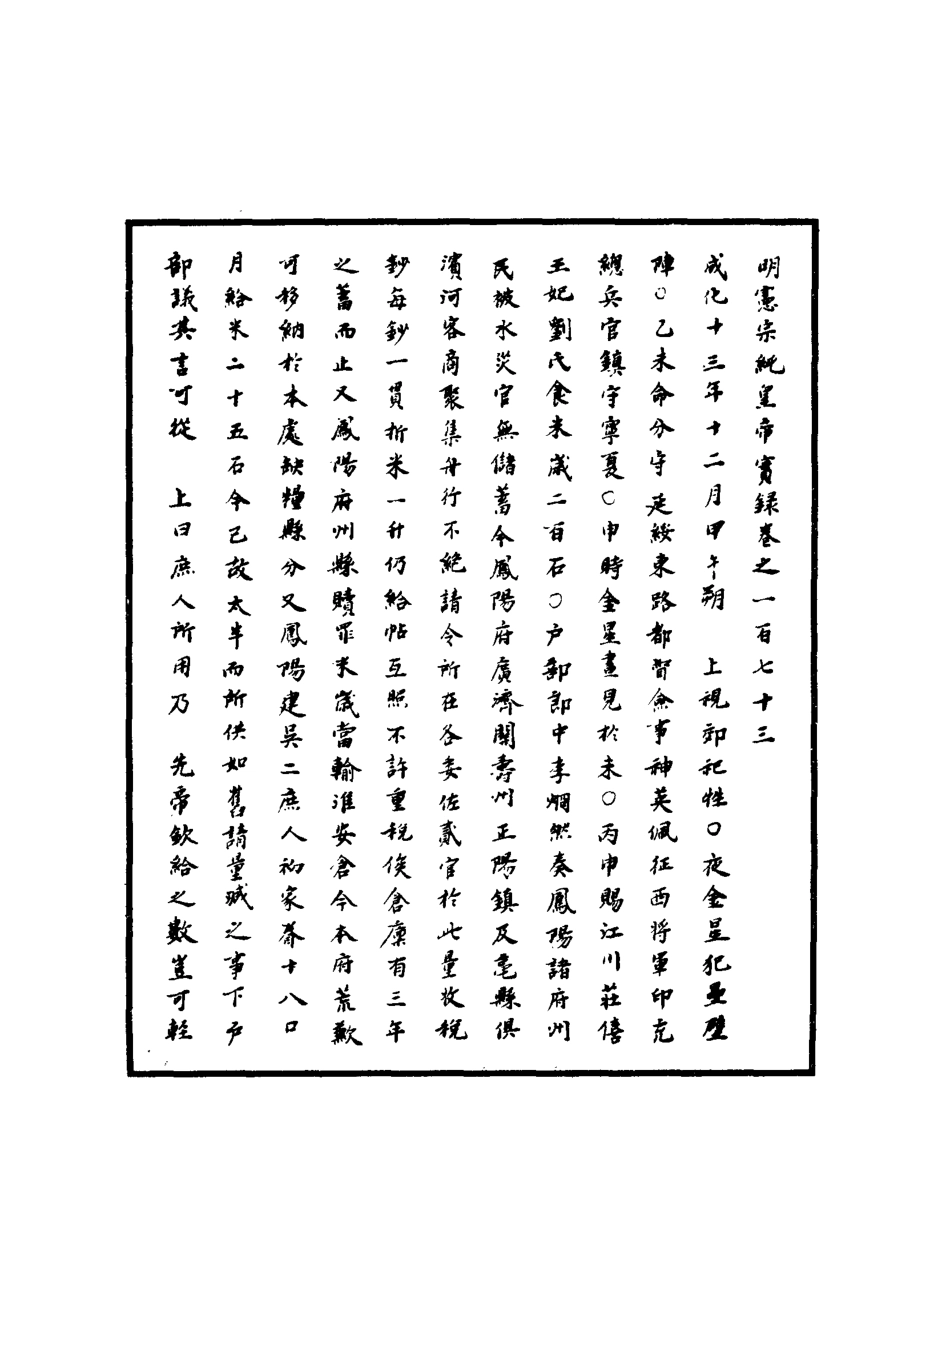 明憲宗純皇帝實録卷之一百七十三
成化十三年十二月甲午朔　上視郊祀牲○夜金星犯壘壁
陣○乙未命分守延綏東路都督僉事神英佩征西將軍印充
總兵官鎮守寧夏○申時金星晝見於未○丙申賜江川莊僖
王妃劉氏食米歲二百石○户部郎中李烱然奏鳳陽諸府州
民被水災官無儲蓄今鳳陽府廣濟關壽州正陽鎮及亳縣俱
濱河客商聚集舟行不絶請令所在各委佐貳官於此量收税
鈔每鈔一貫折米一升仍給帖互照不許重税俟倉廪有三年
之蓄而止又鳳陽府州縣贖罪米歲當輸淮安倉今本府荒歉
可移納於本處缺糧縣分又鳳陽建吴二庶人初家眷十八口
月給米二十五石今已故太半而所供如舊請量减之事下户
部議其言可從　上曰庶人所用乃　先帝欽給之數豈可輕